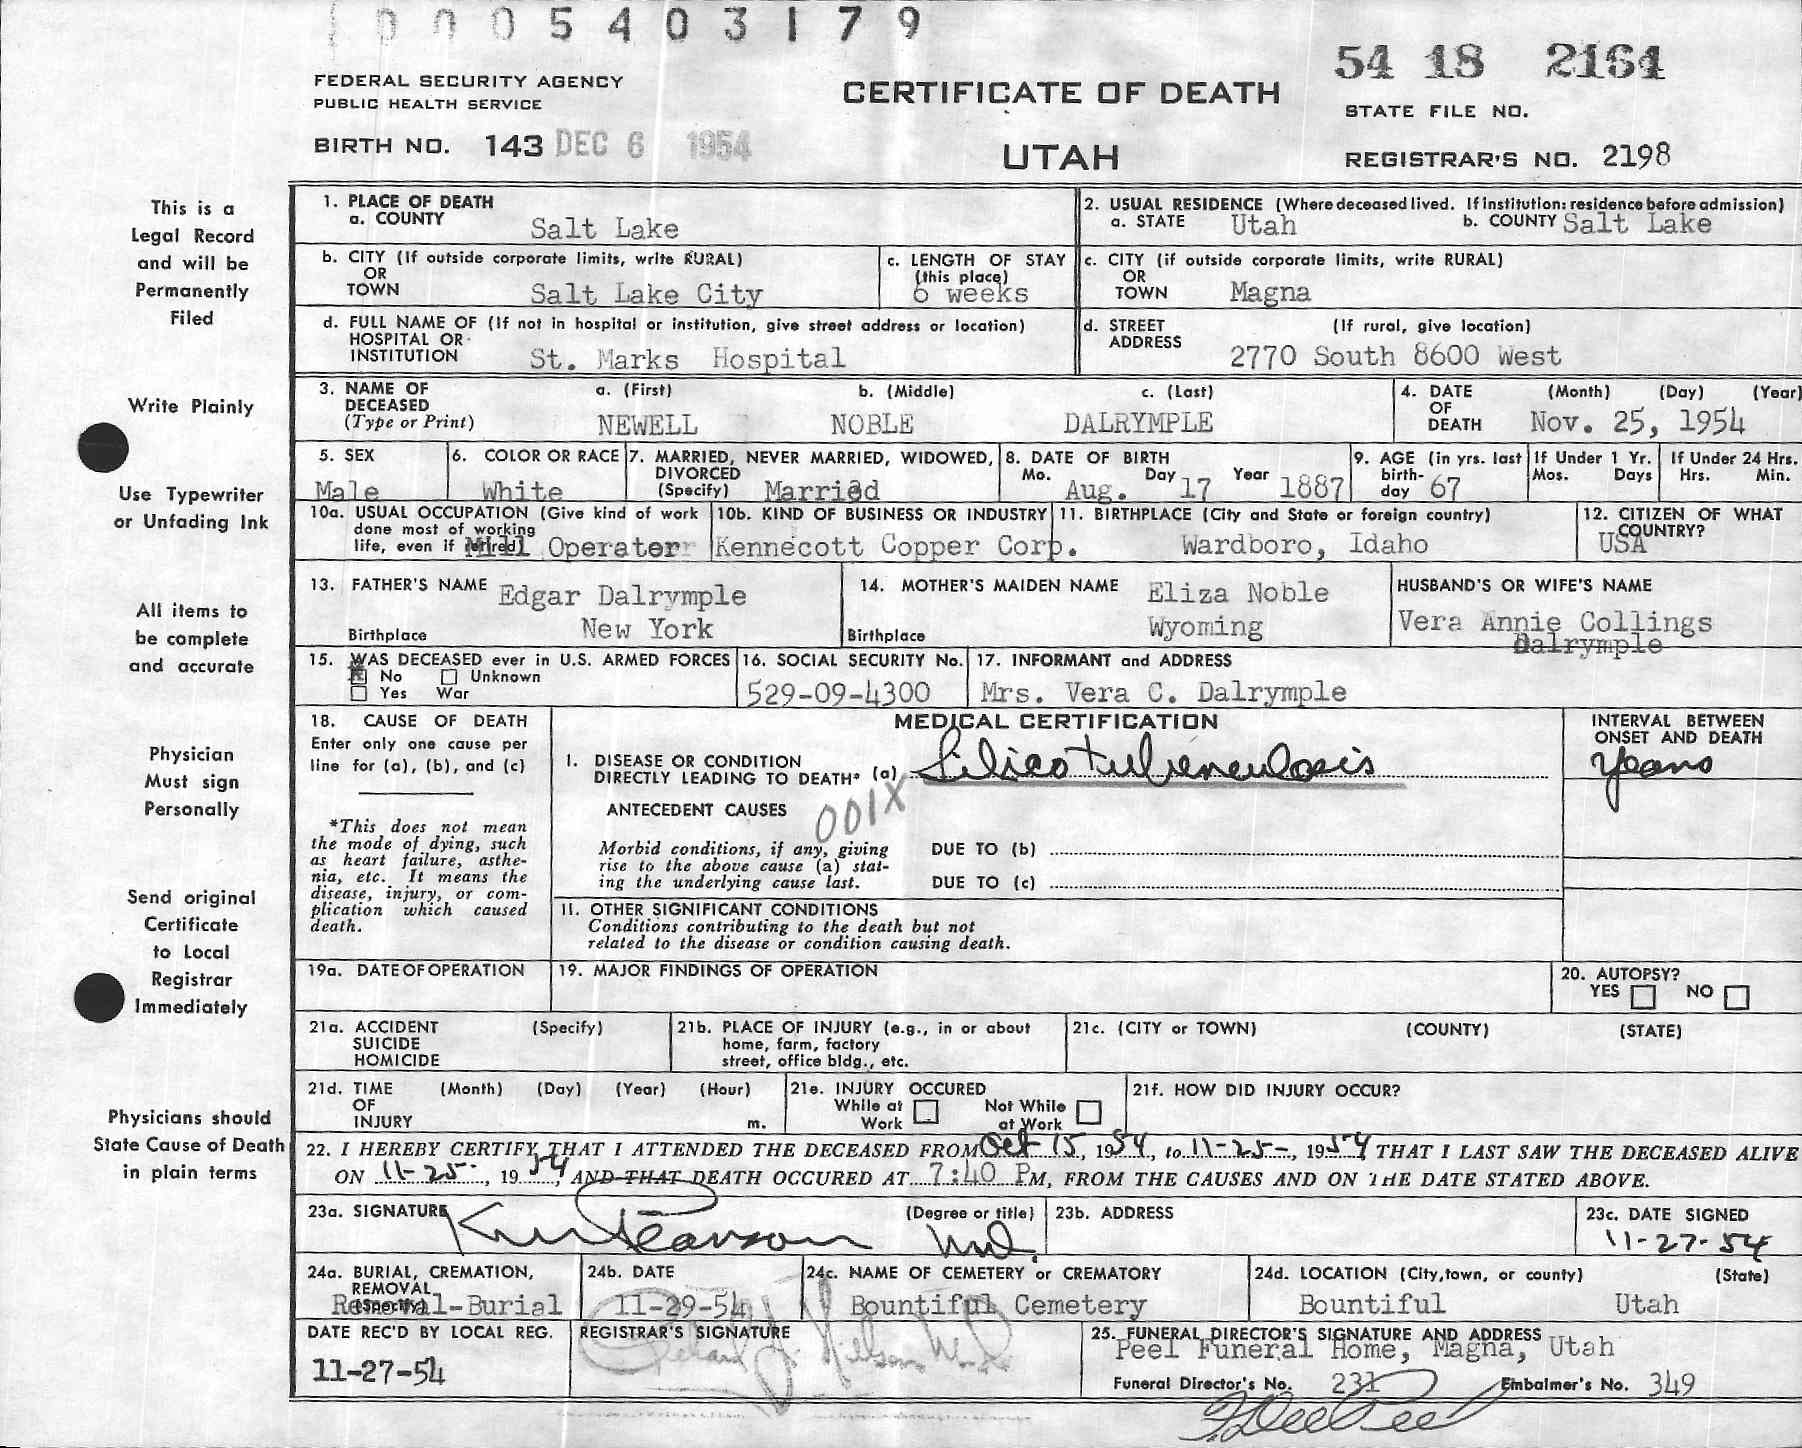 0005403179
54 18 2164
FEDERAL SECURITY AGENCY
PUBLIC HEALTH SERVICE
CERTIFICATE OF DEATH
STATE FILE NO.
BIRTH NO. 143 DEC 6 1954
UTAH
REGISTRAR'S NO. 2198
This is a
Legal Record
and will be
Permanently
Filed
Write Plainly
Use Typewriter
or Unfading Ink
All items to
be complete
and accurate
Physician
Must sign
Personally
Send original
Certificate
to Local
Registrar
Immediately
Physicians should
State Cause of Death
in plain terms
1. PLACE OF DEATH
a. COUNTY Salt Lake
2. USUAL RESIDENCE (Where deceased lived. If institution: residence before admission)
a. STATE Utah b. COUNTY Salt Lake
b. CITY (If outside corporate limits, write RURAL)
OR
TOWN Salt Lake City
c. LENGTH OF STAY
(this place)
6 weeks
c. CITY (if outside corporate limits, write RURAL)
OR
TOWN Magna
d. FULL NAME OF (If not in hospital or institution, give street address or location)
HOSPITAL OR
INSTITUTION St. Marks Hospital
d. STREET (If rural, give location)
ADDRESS
2770 South 8600 West
3. NAME OF a. (First) b. (Middle) c. (Last)
DECEASED
(Type or Print) NEWELL NOBLE DALRYMPLE
4. DATE (Month) (Day) (Year)
OF
DEATH Nov. 25, 1954
5. SEX
Male
6. COLOR OR RACE
White
7. MARRIED, NEVER MARRIED, WIDOWED,
DIVORCED
(Specify) Married
8. DATE OF BIRTH
Mo. Day Year
Aug. 17 1887
9. AGE (in yrs. last
birth-
day 67
If Under 1 Yr.
Mos. Days
If Under 24 Hrs.
Hrs. Min.
10a. USUAL OCCUPATION (Give kind of work
done most of working
life, even if retired) Mill Operator
10b. KIND OF BUSINESS OR INDUSTRY
Kennecott Copper Corp.
11. BIRTHPLACE (City and State or foreign country)
Wardboro, Idaho
12. CITIZEN OF WHAT
COUNTRY?
USA
13. FATHER'S NAME Edgar Dalrymple
Birthplace New York
14. MOTHER'S MAIDEN NAME Eliza Noble
Birthplace Wyoming
HUSBAND'S OR WIFE'S NAME
Vera Annie Collings
Dalrymple
15. WAS DECEASED ever in U.S. ARMED FORCES
No Unknown
Yes War
16. SOCIAL SECURITY No.
529-09-4300
17. INFORMANT and ADDRESS
Mrs. Vera C. Dalrymple
18. CAUSE OF DEATH
Enter only one cause per
line for (a), (b), and (c)
*This does not mean
the mode of dying, such
as heart failure, asthe-
nia, etc. It means the
disease, injury, or com-
plication which caused
death.
MEDICAL CERTIFICATION
I. DISEASE OR CONDITION
DIRECTLY LEADING TO DEATH* (a) Silico tuberculosis
INTERVAL BETWEEN
ONSET AND DEATH
years
ANTECEDENT CAUSES
001X
Morbid conditions, if any, giving
rise to the above cause (a) stat-
ing the underlying cause last.
DUE TO (b)
DUE TO (c)
II. OTHER SIGNIFICANT CONDITIONS
Conditions contributing to the death but not
related to the disease or condition causing death.
19a. DATE OF OPERATION
19. MAJOR FINDINGS OF OPERATION
20. AUTOPSY?
YES NO
21a. ACCIDENT (Specify)
SUICIDE
HOMICIDE
21b. PLACE OF INJURY (e.g., in or about
home, farm, factory
street, office bldg., etc.
21c. (CITY or TOWN) (COUNTY) (STATE)
21d. TIME (Month) (Day) (Year) (Hour)
OF
INJURY m.
21e. INJURY OCCURED
While at Work
Not While at Work
21f. HOW DID INJURY OCCUR?
22. I HEREBY CERTIFY THAT I ATTENDED THE DECEASED FROM Oct 15, 1954, to 11-25-, 1954 THAT I LAST SAW THE DECEASED ALIVE
ON 11-25-, 1954, AND THAT DEATH OCCURED AT 7:40 PM, FROM THE CAUSES AND ON THE DATE STATED ABOVE.
23a. SIGNATURE (Degree or title)
Pearson M.D.
23b. ADDRESS
23c. DATE SIGNED
11-27-54
24a. BURIAL, CREMATION,
REMOVAL
(Specify)
Removal-Burial
24b. DATE
11-29-54
24c. NAME OF CEMETERY or CREMATORY
Bountiful Cemetery
24d. LOCATION (City, town, or county) (State)
Bountiful Utah
DATE REC'D BY LOCAL REG.
11-27-54
REGISTRAR'S SIGNATURE
25. FUNERAL DIRECTOR'S SIGNATURE AND ADDRESS
Peel Funeral Home, Magna, Utah
Funeral Director's No. 231 Embalmer's No. 349